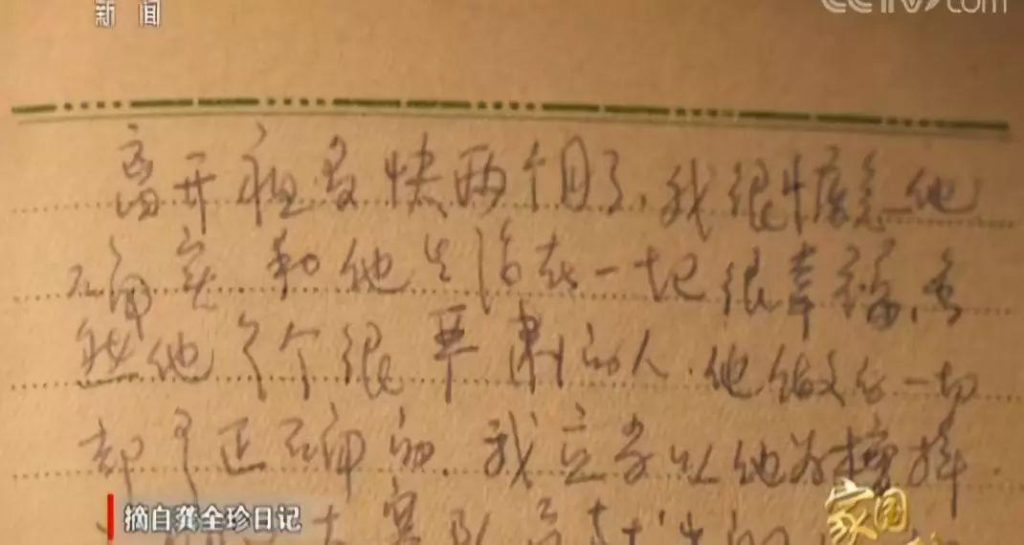 新闻
CCTV.com
离开祖贵快两个月了，我很惦念他
确实，和他生活在一起很幸福，虽
然他是个很严肃的人，他做的一切
都是正确的，我应当以他为榜样
摘自龚全珍日记
家国